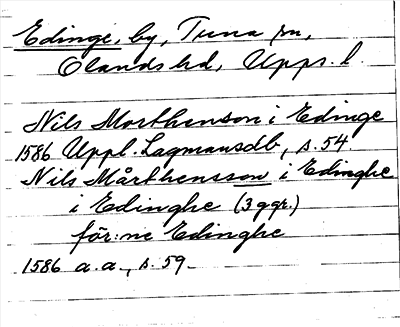 Edinge, by, Tuna sn,
Olands hd, Upps. l.
Nils Morthenson i Edinge
1586 Uppl. Lagmansdb, s. 54.
Nils Mårthensson i Edinghe
i Edinghe (3 ggr.)
för:ne Edinghe
1586 a.a., s. 59.